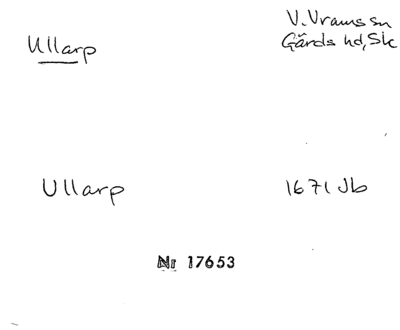 Ullarp
V. Vrams sn
Gärds hd, Sk
Ullarp
1671 Jb
Nr 17653